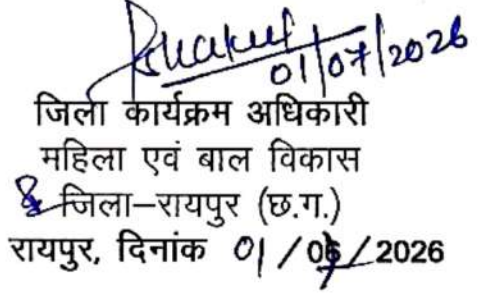 01/07/2026
जिला कार्यक्रम अधिकारी
महिला एवं बाल विकास
जिला–रायपुर (छ.ग.)
रायपुर, दिनांक 01 / 07 / 2026